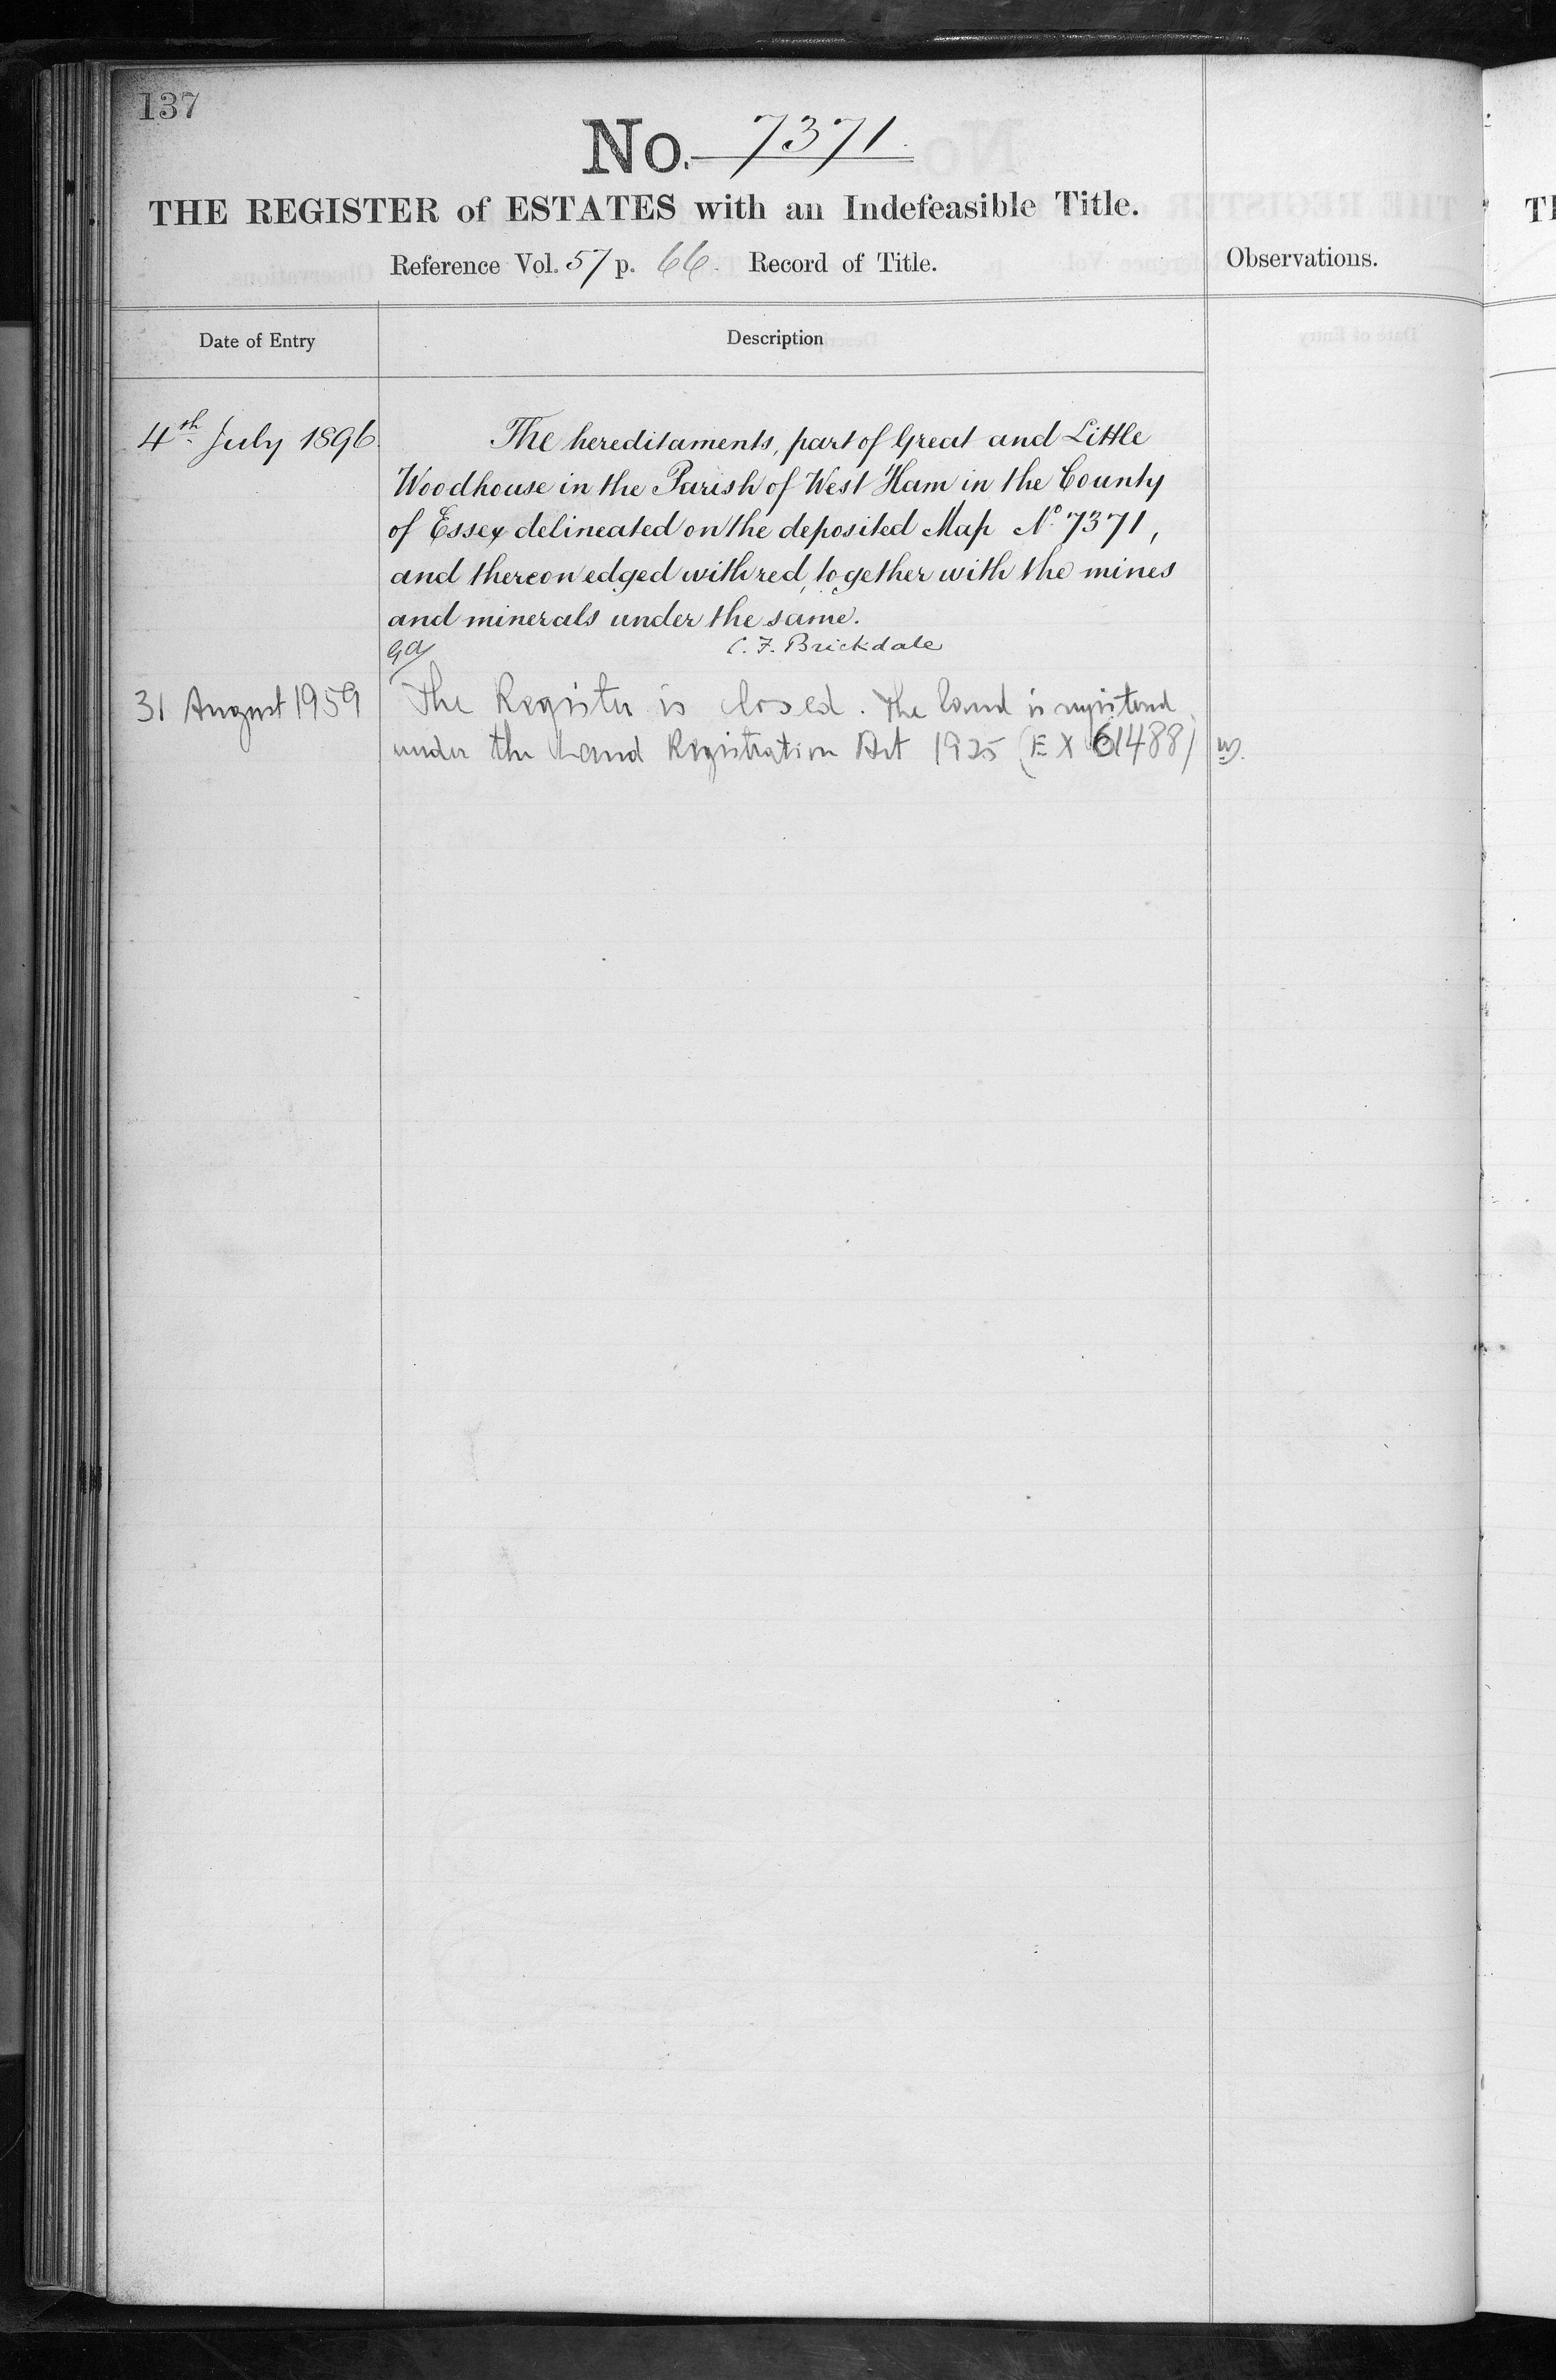 137
No. 7371.
THE REGISTER of ESTATES with an Indefeasible Title.
Reference Vol. 57 p. 66. Record of Title.
Observations.
Date of Entry
Description
4th July 1896.
The hereditaments, part of Great and Little
Woodhouse in the Parish of West Ham in the County
of Essex delineated on the deposited Map No. 7371,
and thereon edged with red, together with the mines
and minerals under the same.
C. F. Brickdale
31 August 1959
The Register is closed. The land is registered
under the Land Registration Act 1925 (EX 61488)